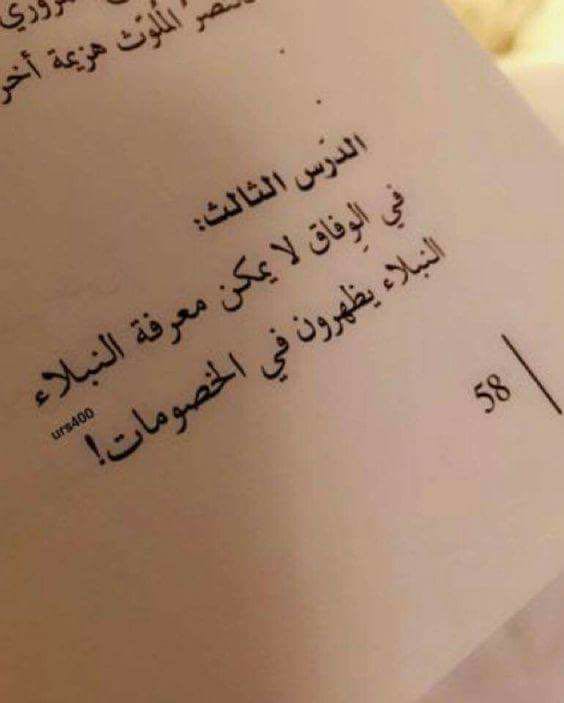 النصر المُلوّث هزيمة أخر
الدّرس الثالث:
في الوِفاق لا يمكن معرفة النبلاء
النبلاء يظهرون في الخصومات!
urs400
58